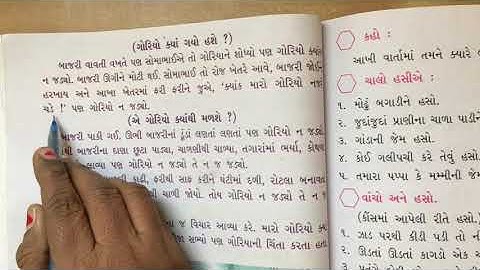 (ગોરિયો ક્યાં ગયો હશે ?)
બાજરી વાવતી વખતે પણ સોમાભાઈએ તો ગોરિયાને શોધ્યો પણ ગોરિયો ક્યાંય
ન જડ્યો. બાજરી ઊગીને મોટી થઈ. સોમાભાઈ તો રોજ ખેતરે આવે, બાજરી જોઈને
હરખાય અને આખા ખેતરમાં ફરી ફરીને જુએ, 'ક્યાંક મારો ગોરિયો નજરે
ચડે !' પણ ગોરિયો ન જડ્યો.
(એ ગોરિયો ક્યાંથી મળશે ?)
બાજરી પાકી ગઈ. ઊભી બાજરીનાં ડૂંડાં લણતાં લણતાં પણ ગોરિયો ન જડ્યો.
બાજરીના દાણા છૂટા પાડ્યા, ચાળણીથી ચાળ્યા, તગારાંમાં ભર્યા, કોથળા
લાવ્યા પણ ગોરિયો ન જડ્યો તે ન જ જડ્યો.
કાઢી, ફરીથી સાફ કરીને ઘંટીમાં દળી, રોટલા બનાવવા
ચાળી જોયો. તોય ગોરિયો ન જડ્યો તે ન
ના જ વિચાર આવ્યા કરે. મારો ગોરિયો ક્યાં
પણ ગોરિયાની ચિંતા કરતા હતા
કહો :
આખી વાર્તામાં તમને ક્યારે
ચાલો હસીએ :
૧. મોઢું બગાડીને હસો.
૨. જુદાંજુદાં પ્રાણીના ચાળા પાડીને
૩. ગાંડાની જેમ હસો.
૪. કોઈ ગલીપચી કરે તેવું હસો.
૫. તમારા પપ્પા કે મમ્મીની જેમ
વાંચો અને હસો.
(કૌંસમાં આપેલી રીતે હસો.)
૧. ઝાડ પરથી કીડી પડી તો
૨. ઊડતાં ઊડતાં કાગડો એક